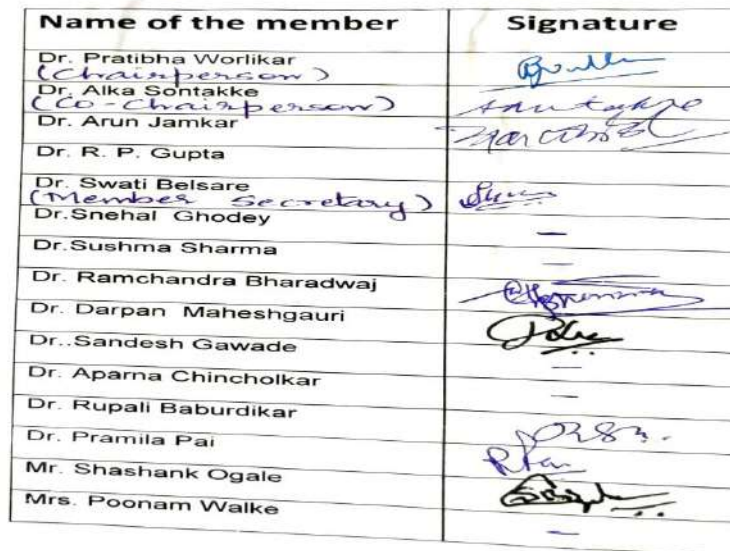 Name of the member Signature
Dr. Pratibha Worlikar
(Chairperson)
Dr. Alka Sontakke
(Co-Chairperson)
Dr. Arun Jamkar
Dr. R. P. Gupta
Dr. Swati Belsare
(Member Secretary)
Dr.Snehal Ghodey —
Dr.Sushma Sharma —
Dr. Ramchandra Bharadwaj
Dr. Darpan Maheshgauri
Dr..Sandesh Gawade —
Dr. Aparna Chincholkar —
Dr. Rupali Baburdikar
Dr. Pramila Pai
Mr. Shashank Ogale
Mrs. Poonam Walke —